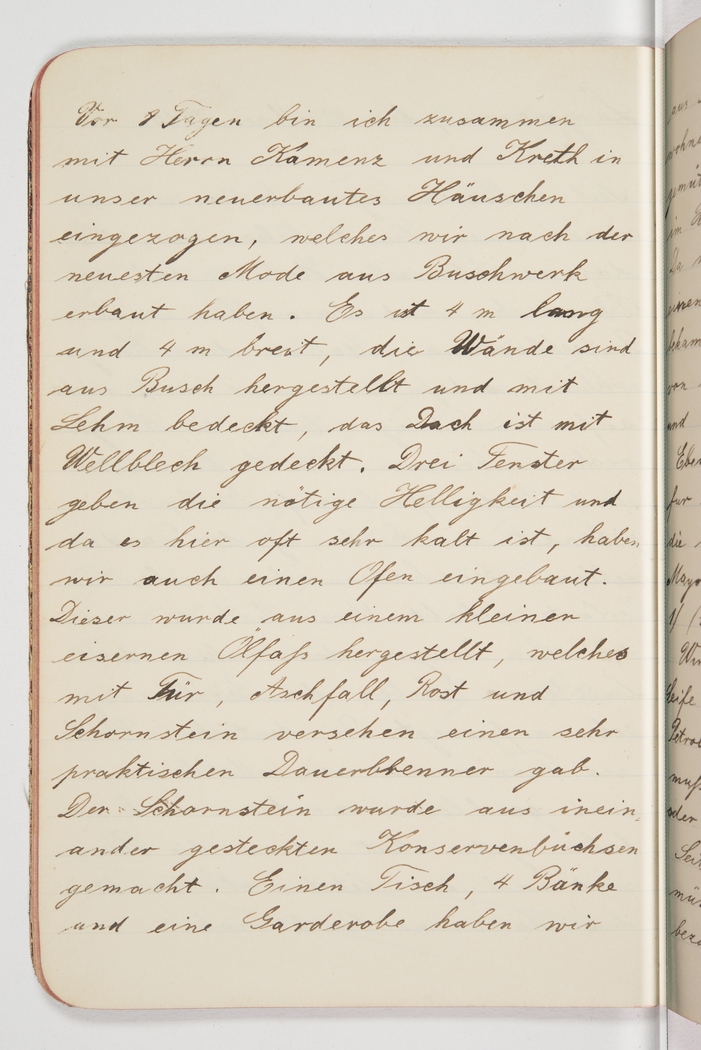 Vor 8 Tagen bin ich zusammen
mit Herrn Kamenz und Kreth in
unser neuerbautes Häuschen
eingezogen, welches wir nach der
neuesten Mode aus Buschwerk
erbaut haben. Es ist 4 m lang
und 4 m breit, die Wände sind
aus Busch hergestellt und mit
Lehm bedeckt, das Dach ist mit
Wellblech gedeckt. Drei Fenster
geben die nötige Helligkeit und
da es hier oft sehr kalt ist, haben
wir auch einen Ofen eingebaut.
Dieser wurde aus einem kleinen
eisernen Ölfaß hergestellt, welches
mit Tür, Aschfall, Rost und
Schornstein versehen einen sehr
praktischen Dauerbrenner gab.
Der Schornstein wurde aus inein-
ander gesteckten Konservenbüchsen
gemacht. Einen Tisch, 4 Bänke
und eine Garderobe haben wir